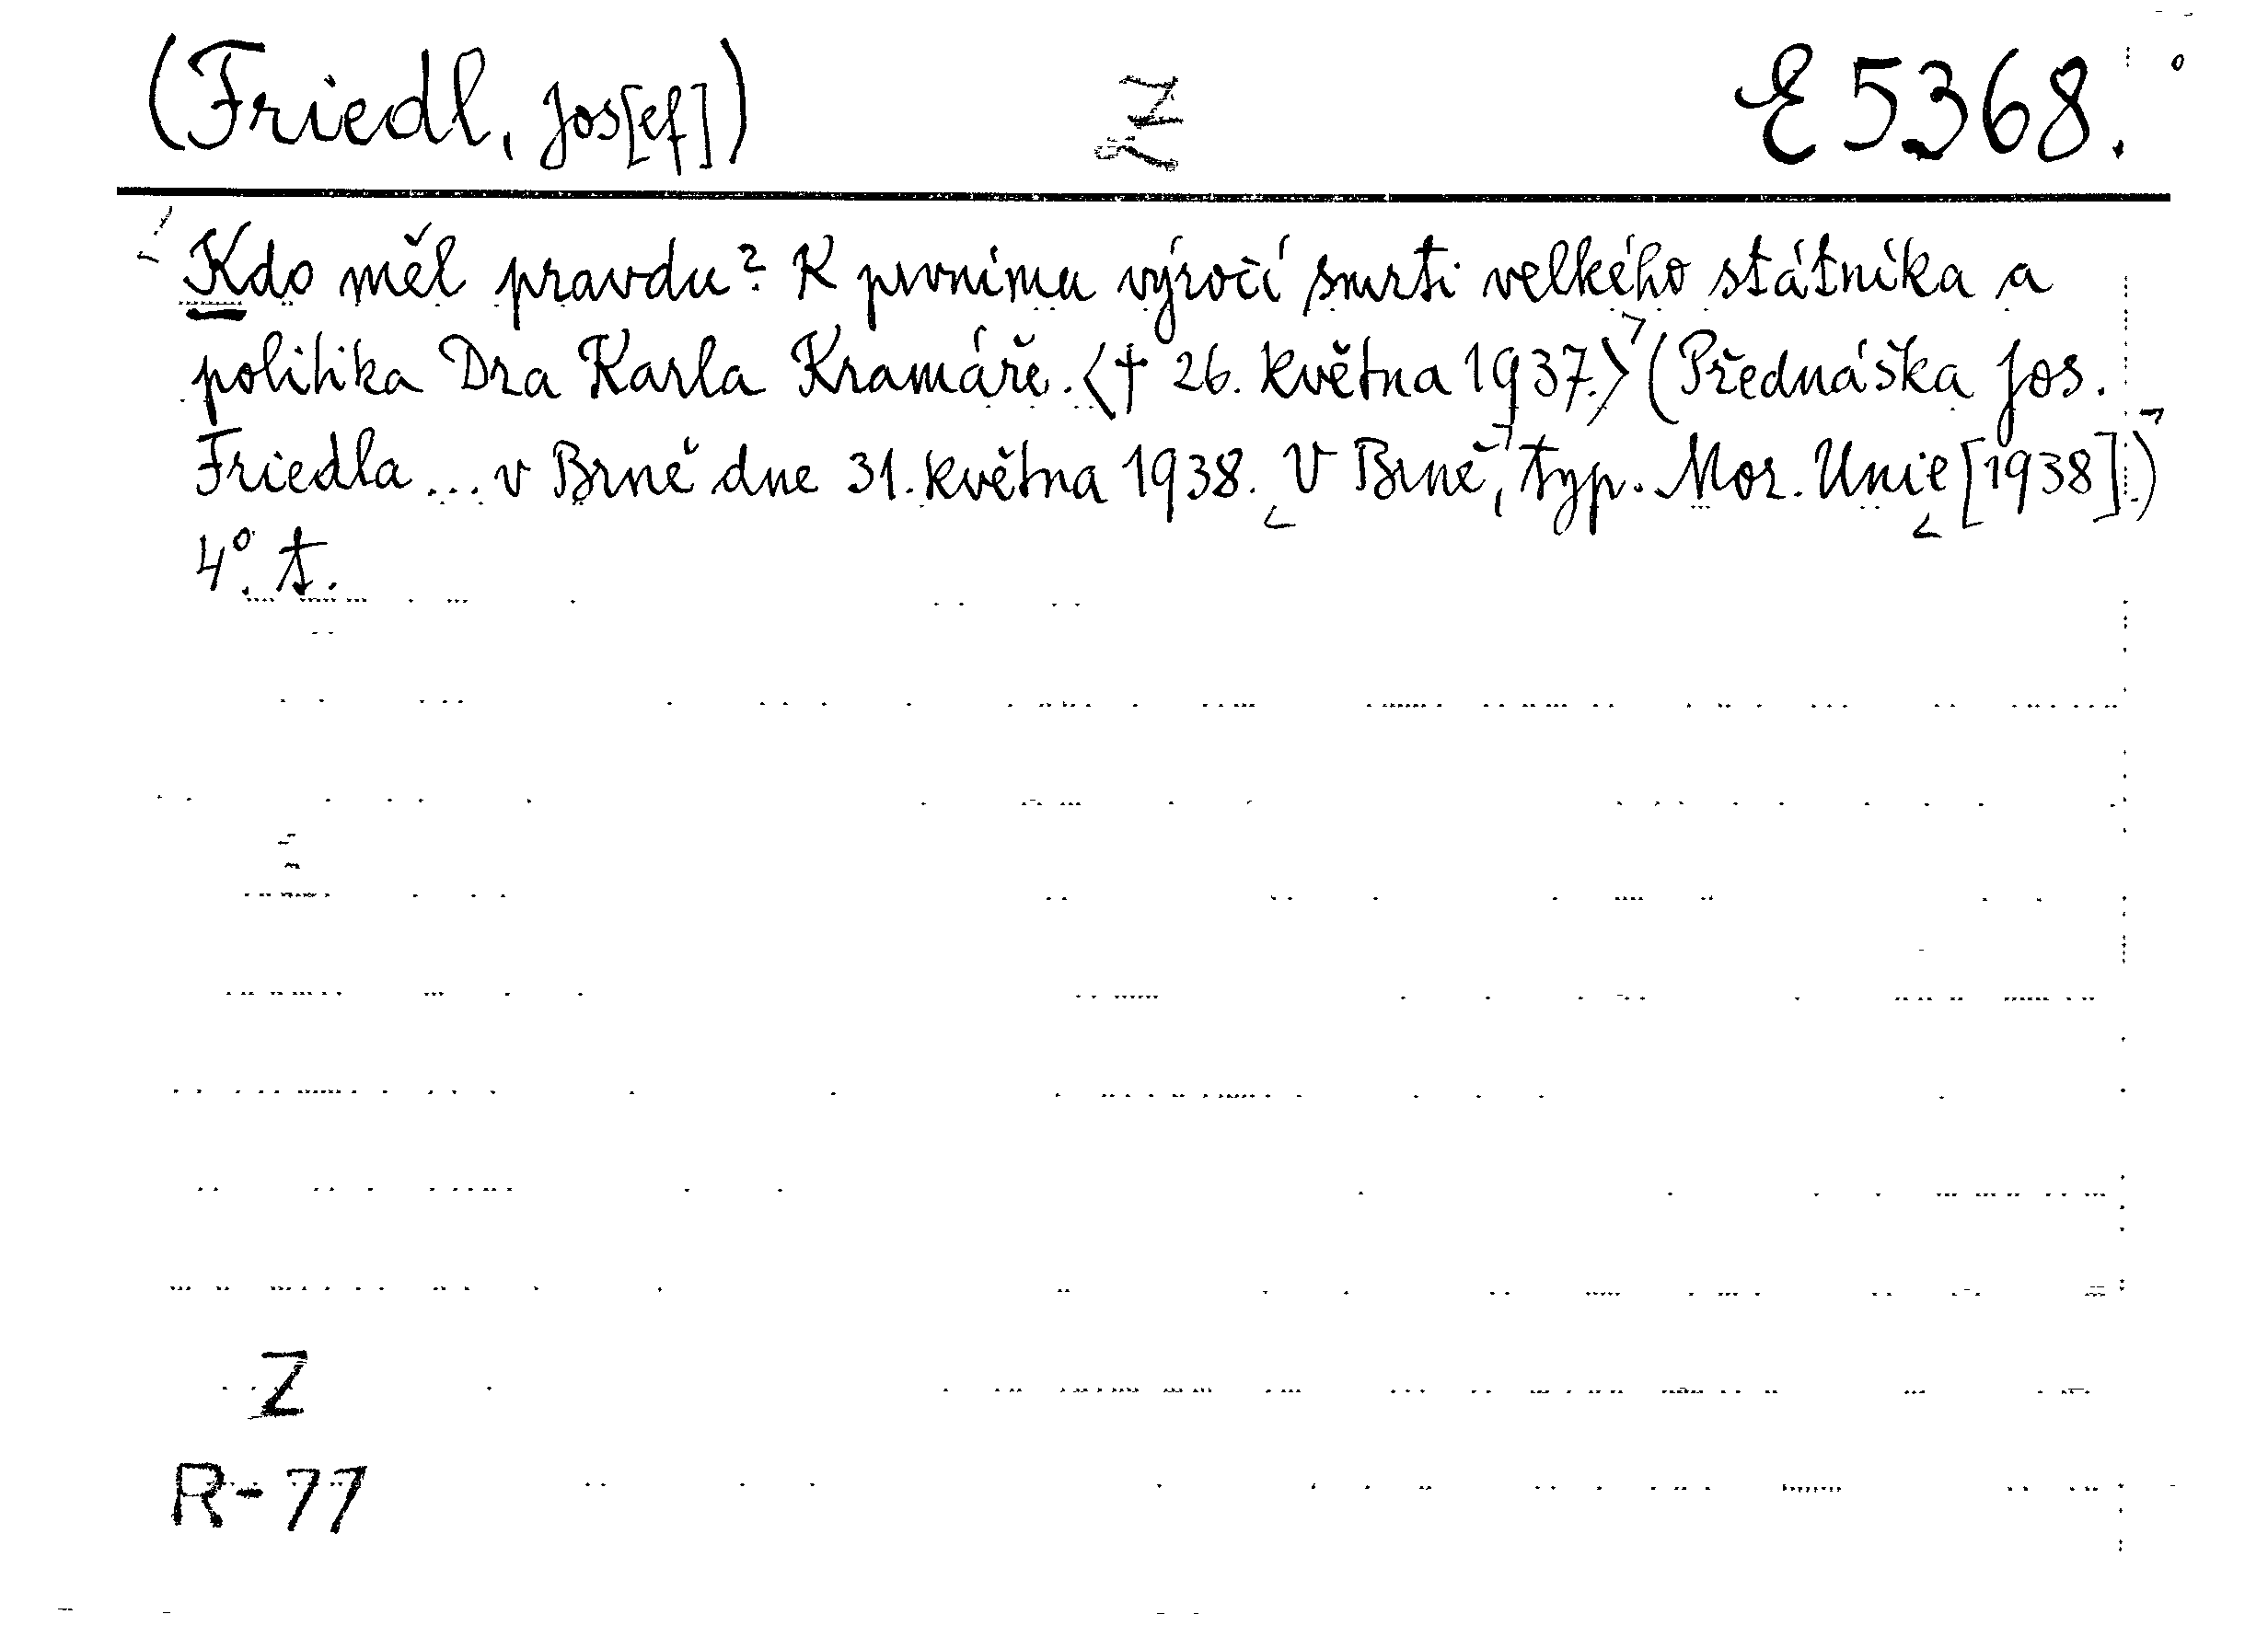 (Friedl, Jos[ef]) Z E 5368.
Kdo měl pravdu? K prvnímu výročí smrti velkého státníka a
politika Dra Karla Kramáře. <† 26. května 1937.> (Přednáška Jos.
Friedla ... v Brně dne 31. května 1938. V Brně, typ. Mor. Unie [1938].)
4°. t.
Z
R-77